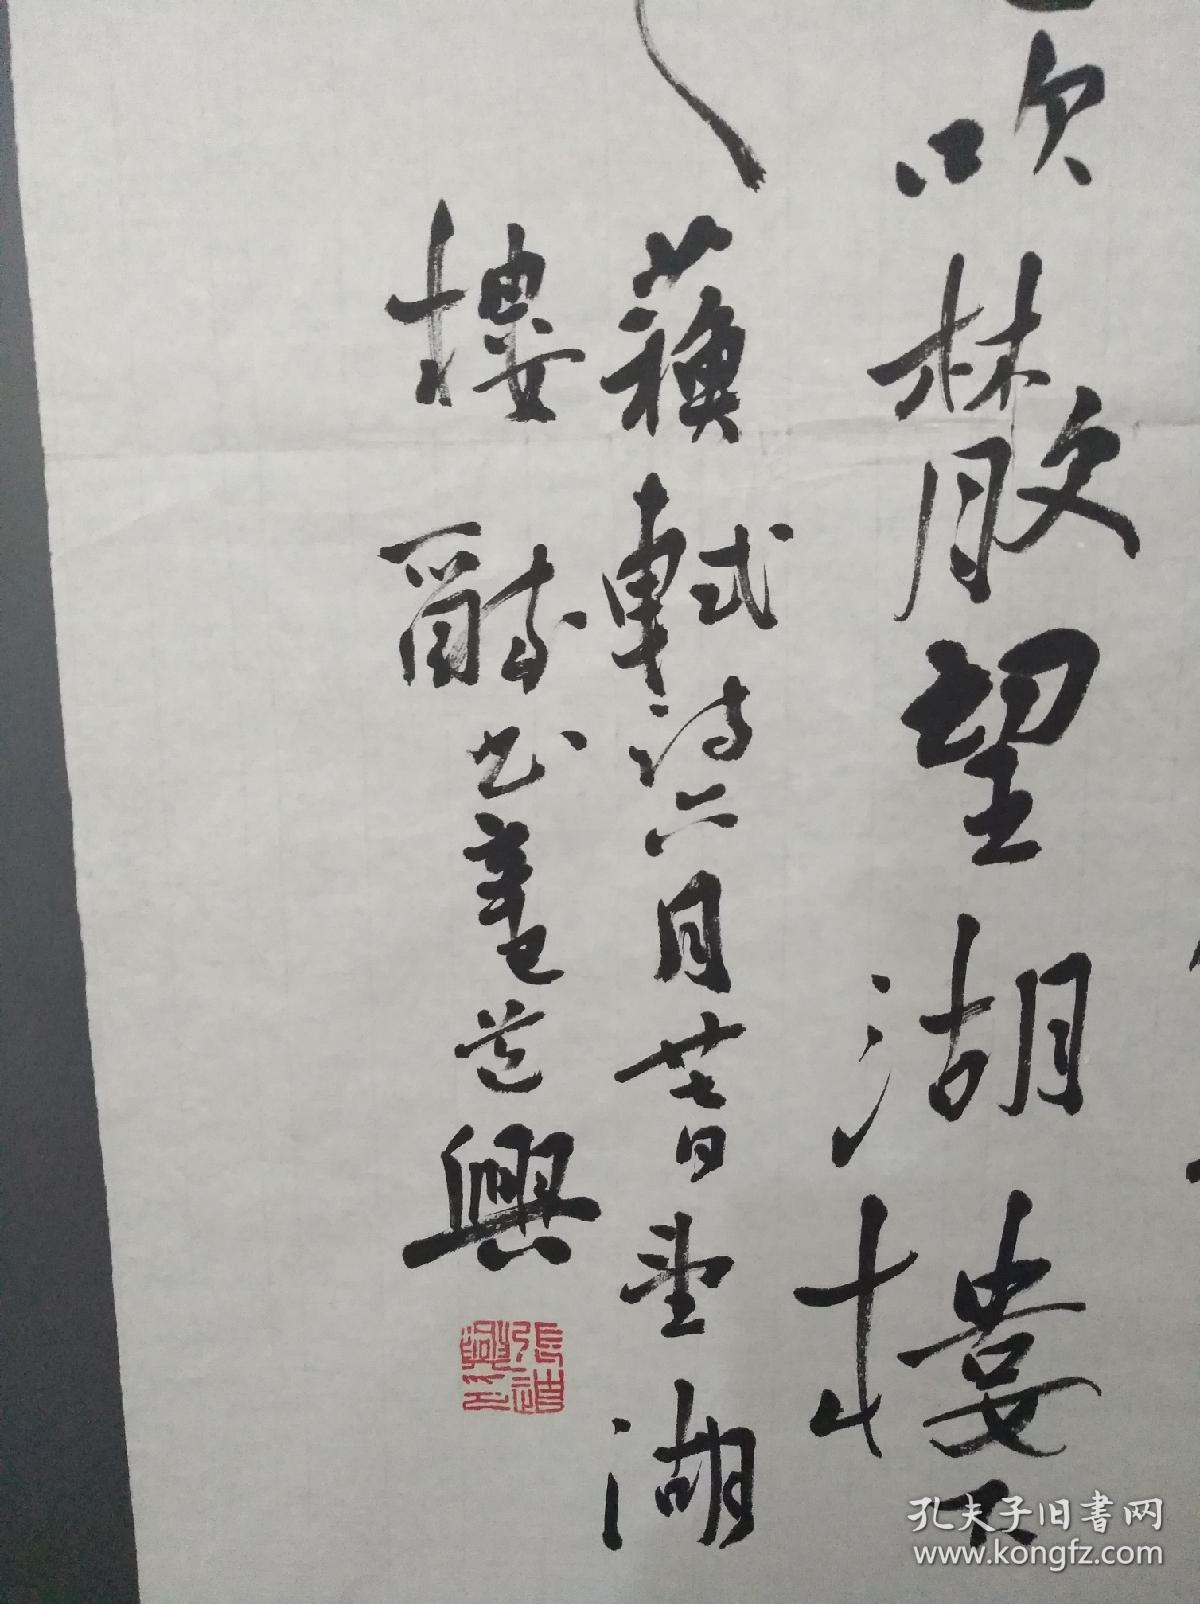 吹散望湖樓下
蘇軾詩六月廿七日望湖
樓醉書
道興
張道興印
孔夫子旧书网
www.kongfz.com